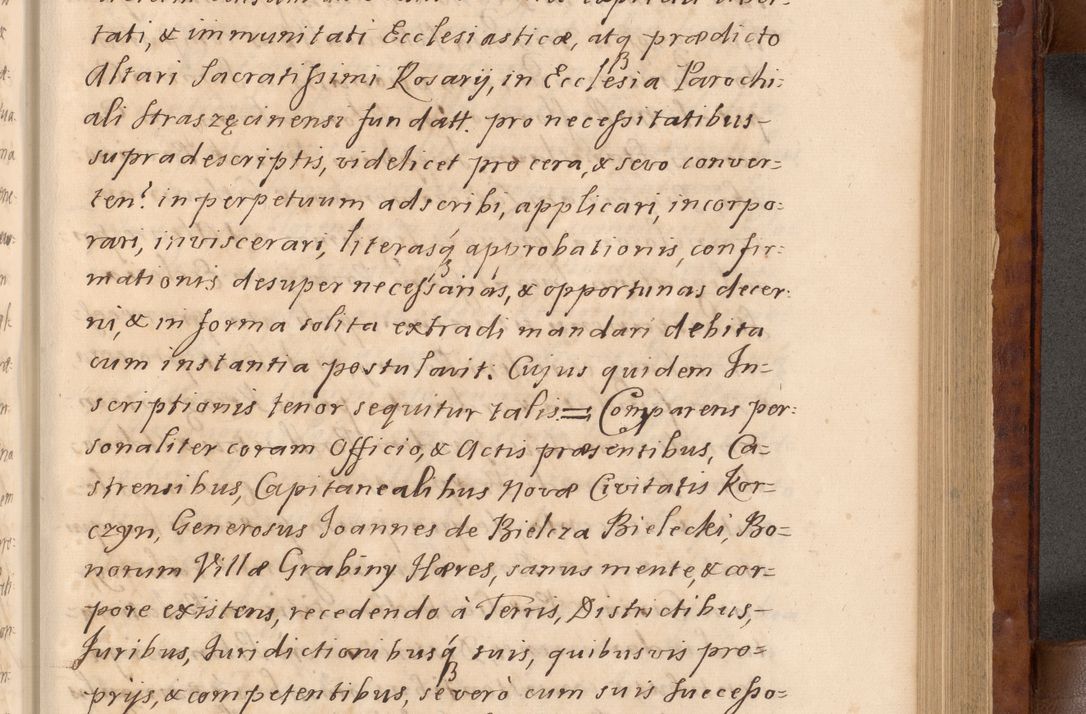 tati, & immunitati Ecclesiasticæ, atq prædicto
Altari Sacratissimi Rosarij, in Ecclesia Parochi=
ali Straszęcinensi fundatt. pro necessitatibus
supradescriptis, videlicet pro cera, & sevo conver=
ten? in perpetuum adscribi, applicari, incorpo=
rari, inviscerari, literasq approbationis, confir=
mationis desuper necessarias, & opportunas decer=
ni, & in forma solita extradi mandari debita
cum instantia postulavit. Cujus quidem In=
scriptionis tenor sequitur talis = Comparens per=
sonaliter coram Officio, & Actis præsentibus, Ca=
strensibus, Capitanealibus Novæ Civitatis Kor=
czyn, Generosus Joannes de Bielcza Bielecki, Bo=
norum Villæ Grabiny Hæres, sanus mente, & cor=
pore existens, recedendo à Terris, Districtibus,
Juribus, Juridictionibusq suis, quibusvis pro=
prijs, & competentibus, se verò cum suis successo=